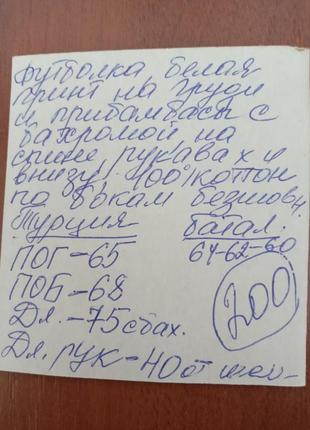 футболка белая
принт на груди
и прибамбасы с
бахромой на
спине, рукавах и
внизу, 100% коттон
по бокам безшовн.
Турция батал.
64-62-60
ПОГ-65
ПОБ-68
Дл.-75 с бах.
Дл. рук-40 от